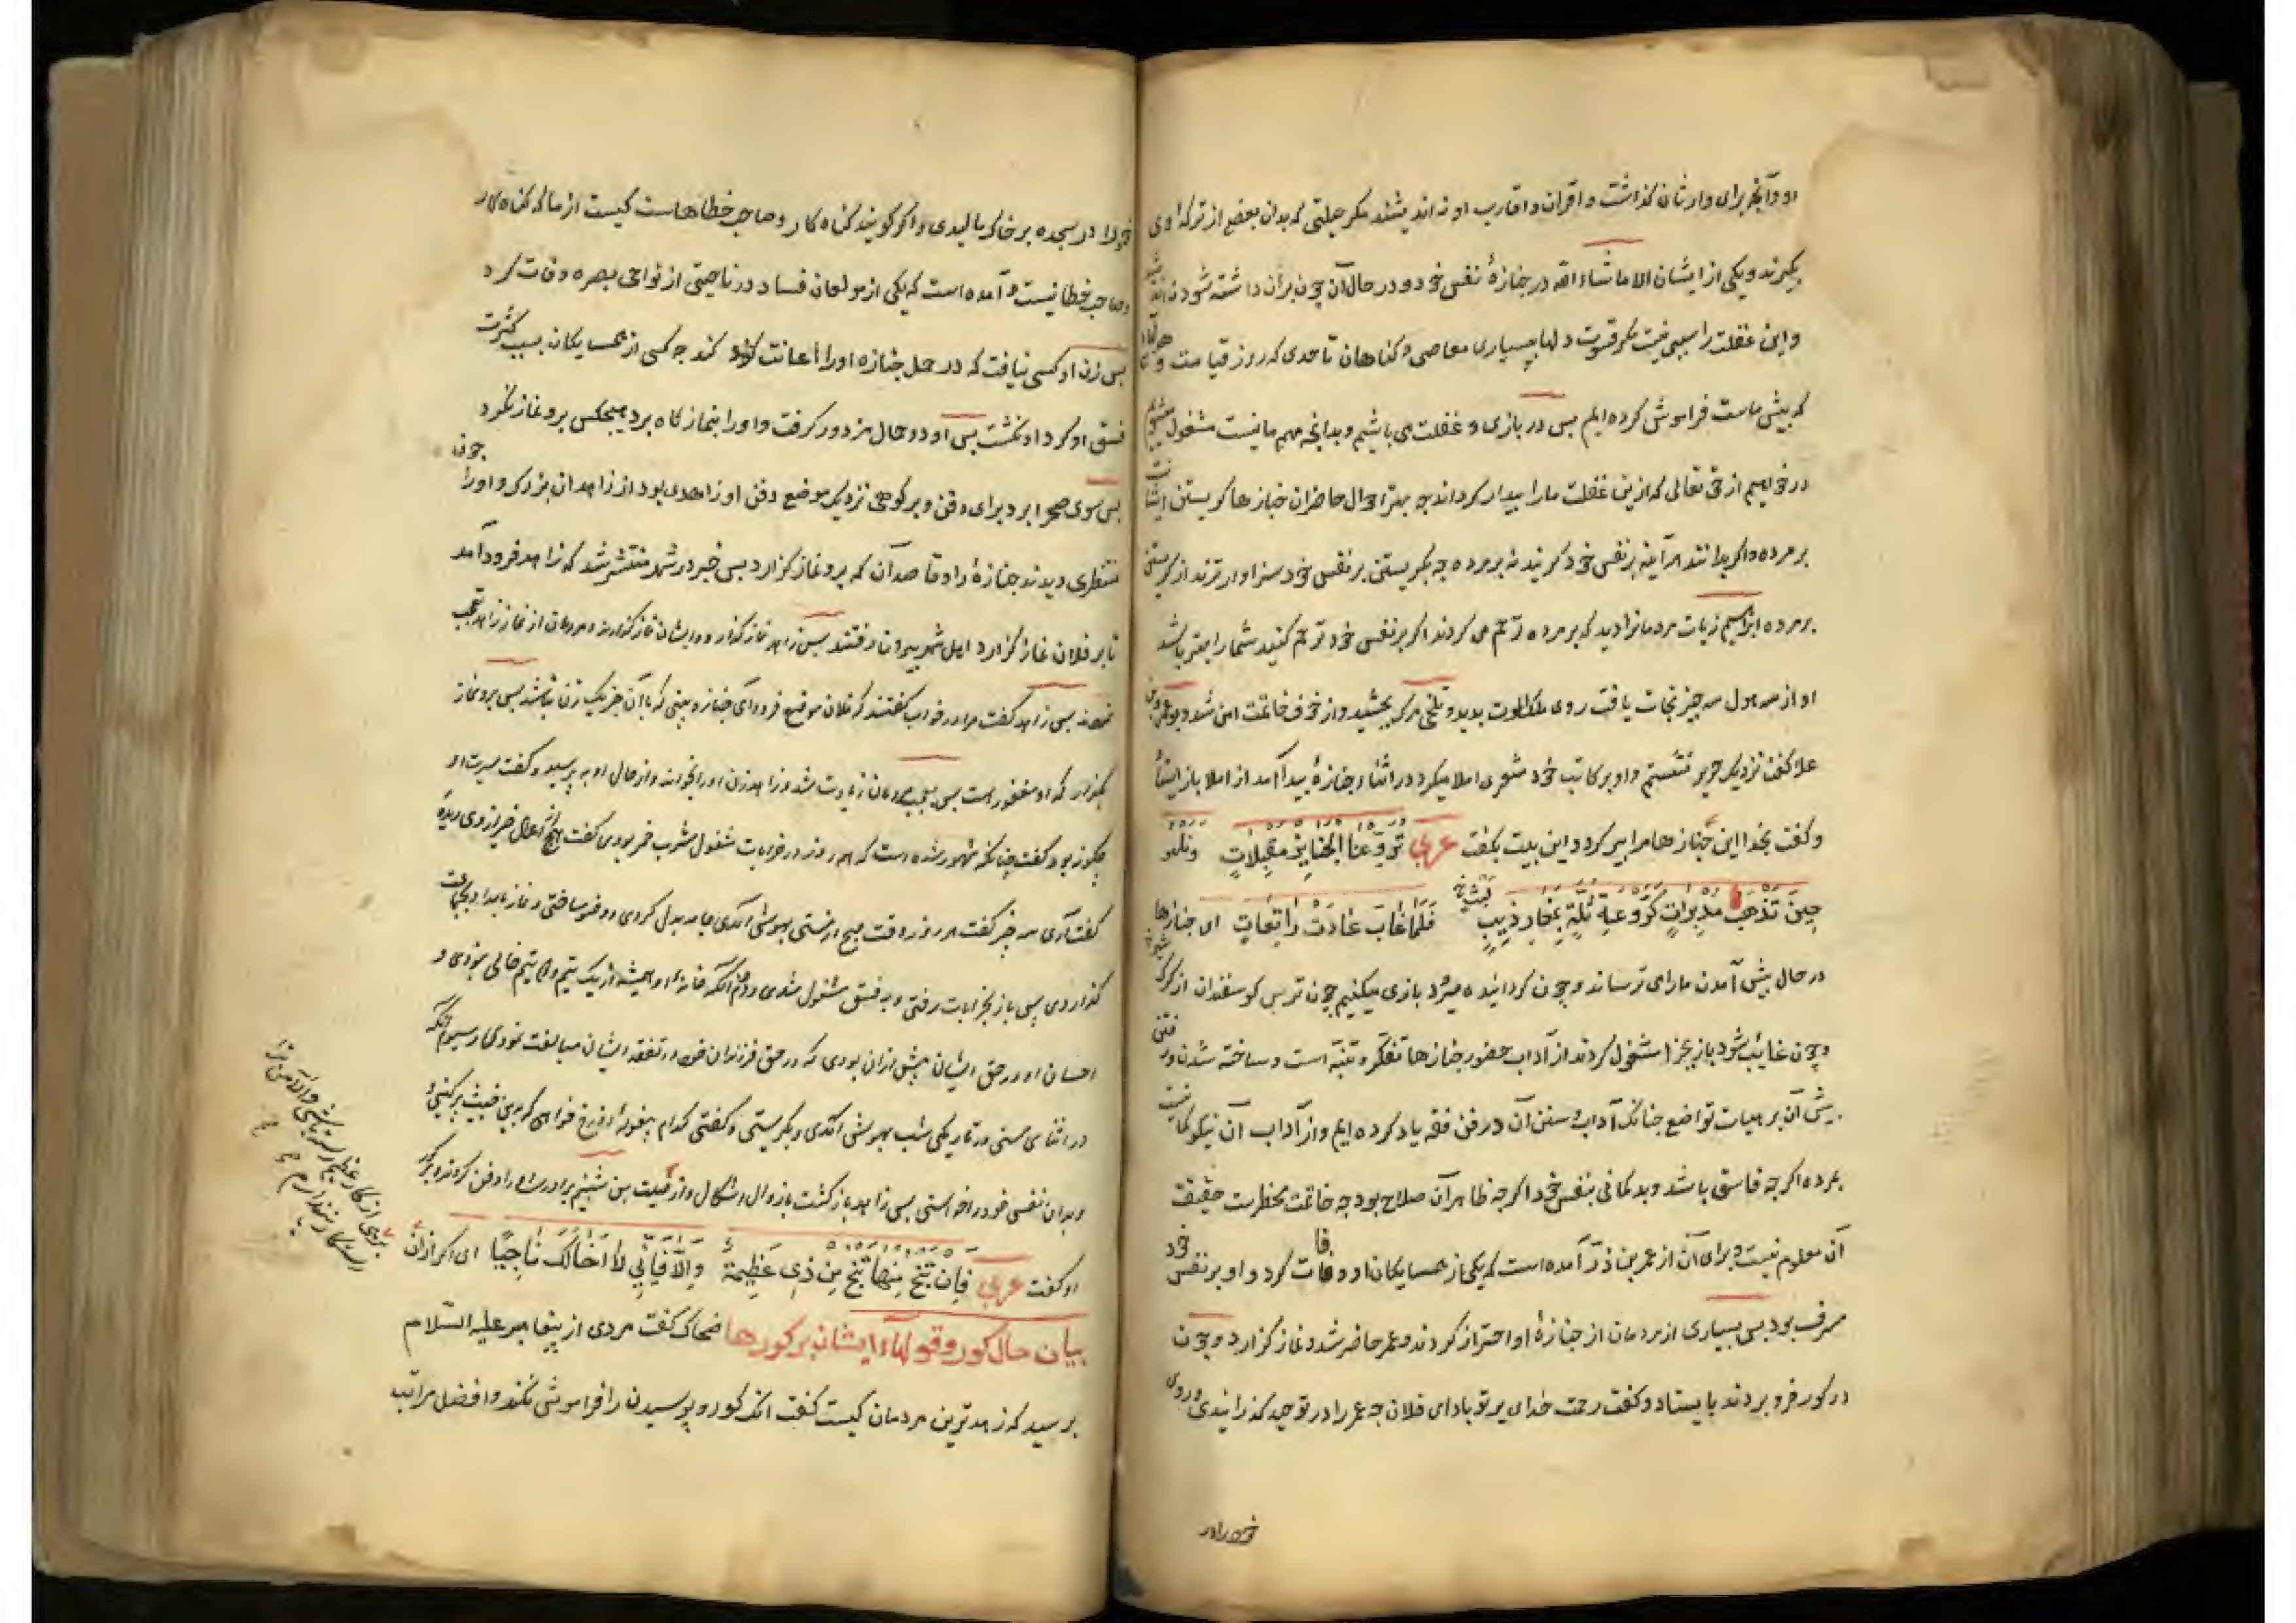 او و آنچه برای وارثان گذاشت و اقران و اقارب او نه اندیشند مکر حیلتی که بدان بعضی از ترکهٔ وی
بگیرند و یکی از ایشان الا ماشاء الله در جنازهٔ نفس خود و در حال آن چون بران داشته شود
و این غفلت را سببی نیست مکر قسوت دلها ببسیاری معاصی و کناهان تا حدی که روز قیامت و
که پیش ماست فراموش کرده ایم بس در بازی و غفلت می باشیم و بدانچه مهم ما نیست مشغول میشویم
در خواهیم از حق تعالی که ازین غفلت ما را بیدار کرداند چه بهتر احوال حاضران جنازها کریستن ایشان است
بر مرده و اکر بدانند هر آینه بر نفس خود کریند نه بر مرده چه بکریستن بر نفس خود سزاوارترند از کریستن
بر مرده ابراهیم زیات مردمانرا دید که بر مرده ترحم می کردند اکر بر نفس خود ترحم کنید شما را بهتر باشد
او از سه هول سه چیز نجات یافت روی ملک الموت بدید و تلخی مرک بچشید و از خوف خاتمت امن شد و بو عمرو بن
علا کفت نزدیک جریر نشستم و او بر کاتب خود شعری املا میکرد در اثناء جنازهٔ پیدا آمد از املا باز ایستاد
و کفت بخدا این جنازها مرا پیر کرد و این بیت بکفت عربی تروعنا الجنایز مقبلات ونلهو
حین تذهب مدبرات کروعة ثلة بمغار ذیب فلما غاب عادت راتعات ای جنازها
در حال پیش آمدن ما را می ترساند و چون کردانیده میشود بازی میکنیم چون ترس کوسفندان از کرک
و چون غایب شود باز بچرا مشغول کردند از آداب حضور جنازها تفکر و تنبه است و ساخته شدن و رفتن
پیش آن بر هیات تواضع چنانک آداب و سنن آن در فن فقه یاد کرده ایم و از آداب آن نیکو کمانیست
بمرده اکر چه فاسق باشد و بد کمانی بنفس خود اکر چه ظاهر آن صلاح بود چه خاتمت مخطرست حقیقت
آن معلوم نیست و برای آن از عمر بن ذر آمده است که یکی از همسایکان او وفات کرد و او بر نفس خود
مسرف بود بس بسیاری از مردمان از جنازهٔ او احتراز کردند و عمر حاضر شد و نماز کزارد و چون
در کور فرو بردند بایستاد و کفت رحمت خدای بر تو باد ای فلان چه عمر را در توحید کذرانیدی و روی
خود را در
خود را در سجده بر خاک مالیدی و اکر کویند کناه کار و صاحب خطاهاست کیست از ما که کناه کار
و صاحب خطا نیست و آمده است که یکی از مولعان فساد در ناحیتی از نواحی بصره وفات کرد
بس زن او کسی نیافت که در حمل جنازه او را اعانت کند چه کسی از همسایکان بسبب کثرت
فسق او کرد او نکشت بس او دو حمال مزدور کرفت و او را بنماز کاه برد هیچکس برو نماز نکرد
بس سوی صحرا برد برای دفن و بر کوهی نزدیک موضع دفن او زاهدی بود از زاهدان بزرک و او را چون
منتظری دیدند جنازهٔ را و قاصد آن که برو نماز کزارد بس خبر در شهر منتشر شد که زاهد فرود آمد
تا بر فلان نماز کزارد اهل شهر بیرون رفتند بس زاهد نماز کزارد و ایشان نماز کزاردند و مردمان از نماز زاهد تعجب
نمودند بس زاهد کفت مرا در خواب کفتند که فلان موضع فرود آی جنازه بینی که با آن جز یک زن نباشد بس برو نماز
بکزار که او مغفور است بس تعجب مردمان زیادت شد و زاهد زن او را بخواند و از حال او به پرسید و کفت سیرت او
چکونه بود کفت چنانکه مشهور شده است که همه روز در خرابات مشغول شرب خمر بودی کفت هیچ از اعمال خیر از وی دیدهٔ
کفت آری سه چیز کفت هر روز وقت صبح از مستی بهوش آمدی جامه بدل کردی و وضو ساختی و نماز بامداد بجماعت
کزاردی پس باز بخرابات رفتی و به فسق مشغول شدی و دوم آنکه خانهٔ او همیشه از یک یتیم و دو یتیم خالی نبودی و
احسان او در حق ایشان بیش از آن بودی که در حق فرزندان خود و در تفقد ایشان مبالغت نمودی و سیوم آنکه
در اثنای مستی در تاریکی شب بهوش آمدی و بکریستی و کفتی کدام بیغولهٔ دوزخ خواهی که بدین خبیث پر کنی
و بدان نفس خود را خواستی بس زاهد باز کشت بازوال اشکال و از صلت بن اشیم برادرش را دفن کردند بر کور
او کفت عربی فان تنج منها تنج من ذی عظیمة والا فانی لا اخالک ناجیا ای اکر ازان
بیان حال کور و قولهاء ایشان بر کورها ضحاک کفت مردی از پیغامبر علیه السلام
برسید که زاهدترین مردمان کیست کفت انک کور و پوسیدن را فراموش نکند و افضل مراتب
برهی از کار عظیم رسته باشی و الا من ترا
رستکار نپندارم